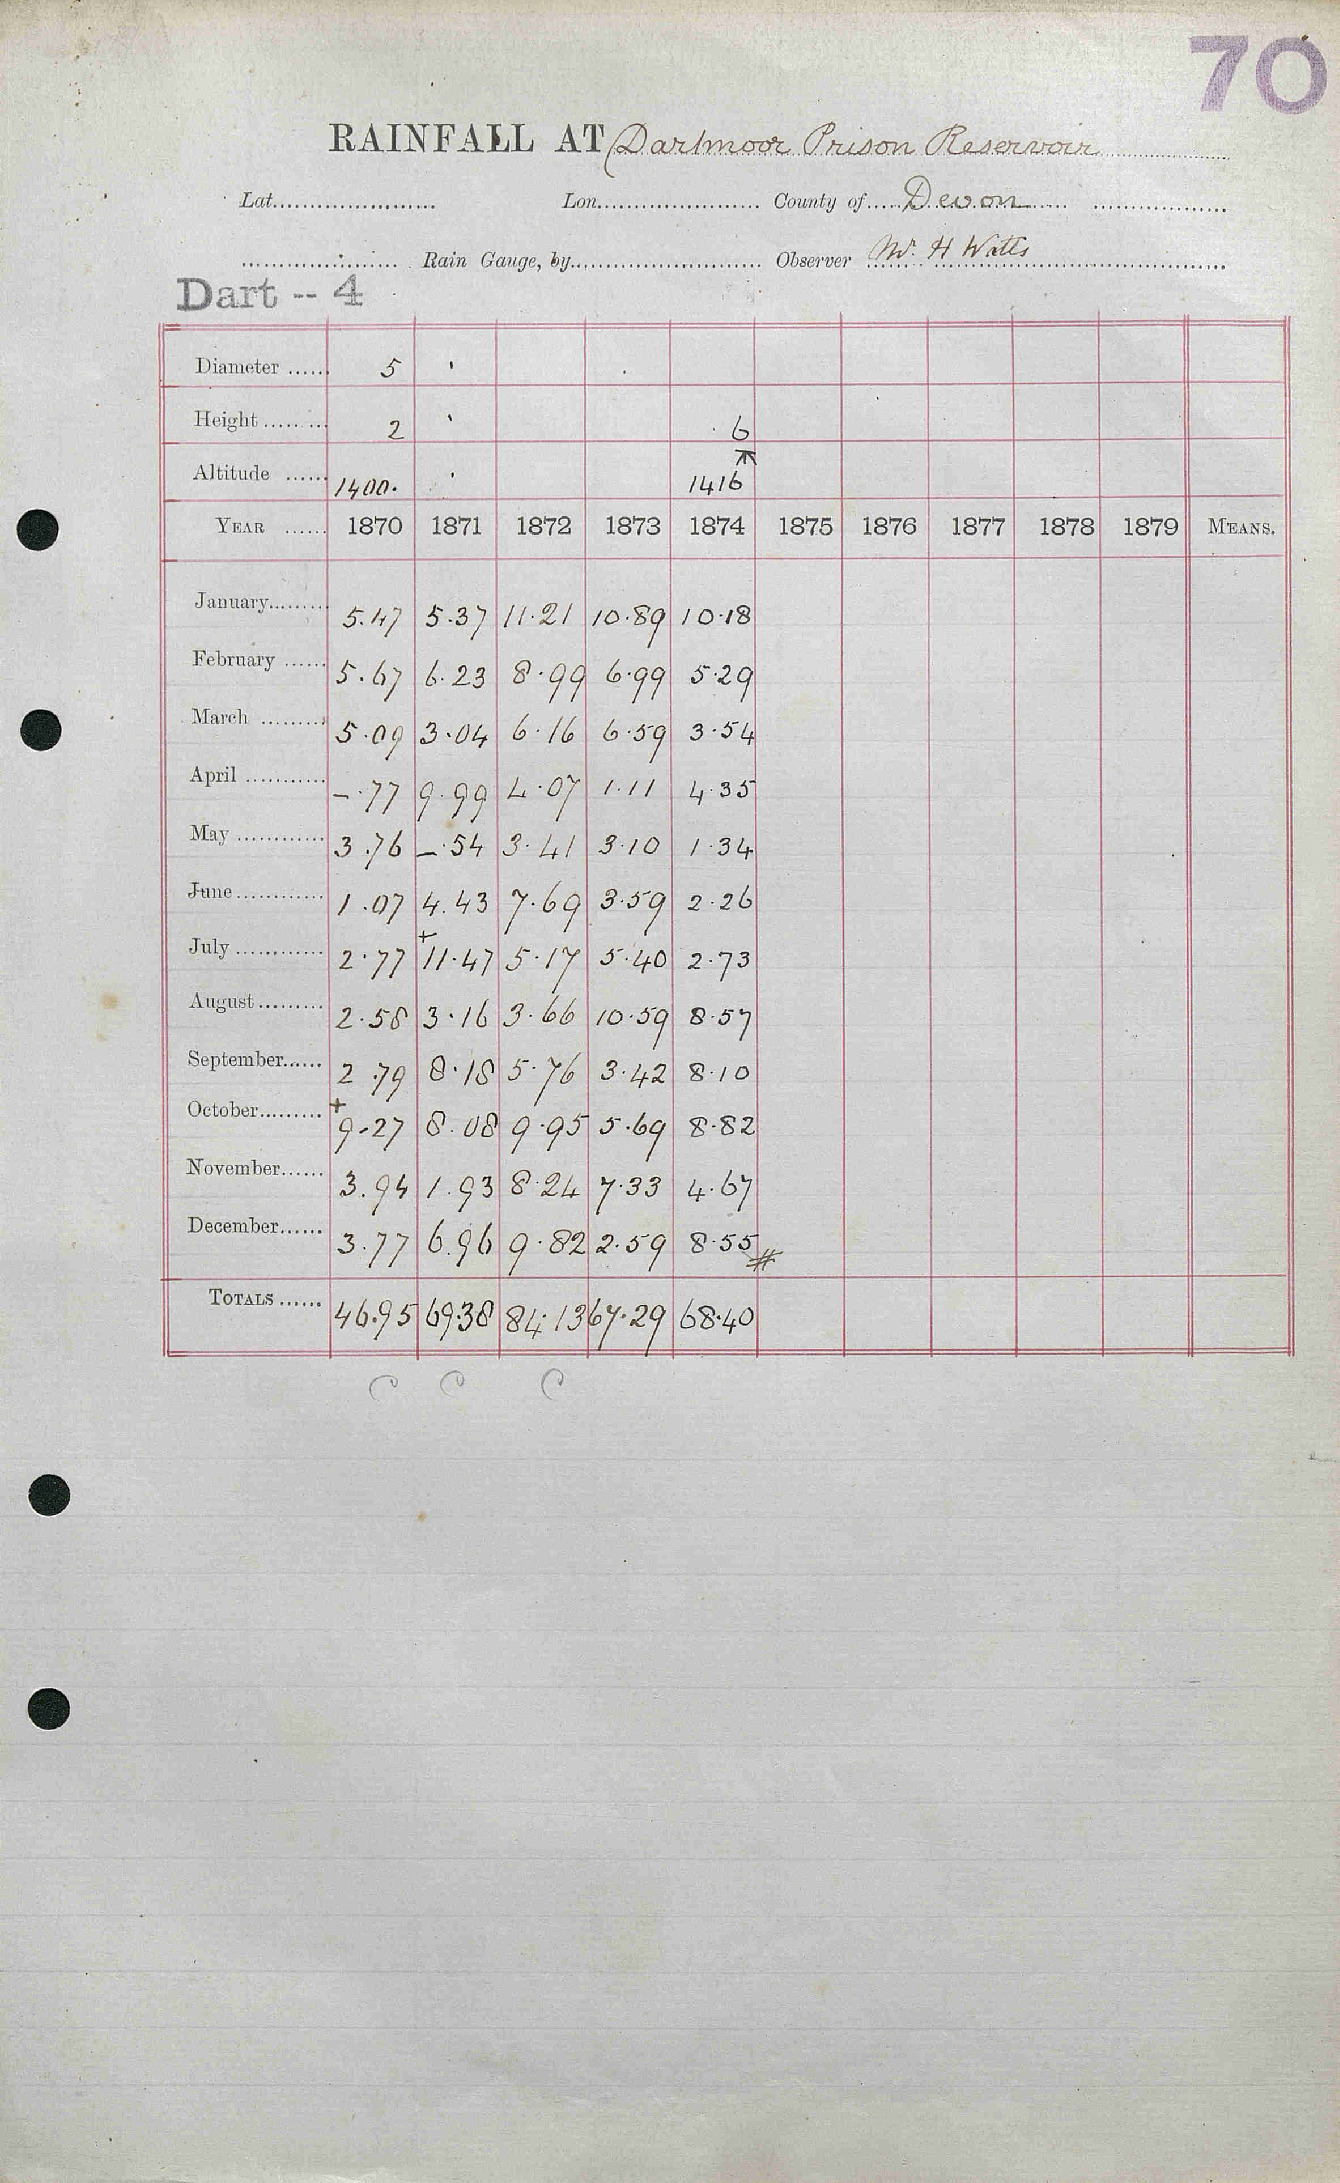 70
RAINFALL AT Dartmoor Prison Reservoir
Lat. Lon. County of Devon
Rain Gauge, by Observer Mr. H Watts
Dart -- 4
Diameter 5 '
Height 2 ' 6
Altitude 1400. ' 1416
YEAR 1870 1871 1872 1873 1874 1875 1876 1877 1878 1879 MEANS.
January 5.47 5.37 11.21 10.89 10.18
February 5.67 6.23 8.99 6.99 5.29
March 5.09 3.04 6.16 6.59 3.54
April -.77 9.99 4.07 1.11 4.35
May 3.76 -.54 3.41 3.10 1.34
June 1.07 4.43 7.69 3.59 2.26
July 2.77 +11.47 5.17 5.40 2.73
August 2.58 3.16 3.66 10.59 8.57
September 2.79 8.18 5.76 3.42 8.10
October +9.27 8.08 9.95 5.69 8.82
November 3.94 1.93 8.24 7.33 4.67
December 3.77 6.96 9.82 2.59 8.55 #
TOTALS 46.95 69.38 84.13 67.29 68.40
C C C